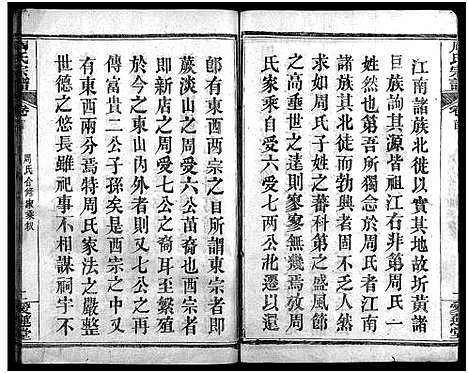 周氏宗譜
卷首
江南諸族北徙以實其地故圻黃諸
巨族詢其源皆祖江右非第周氏一
姓然也第吾所獨念於周氏者江南
諸族其北徙而勃興者固不乏人而
求如周氏子姓之蕃科第之盛風節
之高垂世之遠寥寥無幾焉故周
氏家乘自受六受七兩公北遷以還
愛蓮堂
即有東西兩宗之目所謂東宗者即
蕨淡山之受六公裔也而西宗者
即新店之周受七公之裔耳至繁殖
於今之東山內外者則受七公之再
傳富貴二公子孫矣是西宗之中又
有東西兩分焉特周氏家法之嚴整
世德之悠長雖祀事不相謀祠宇不
周氏合修家乘叙
愛蓮堂